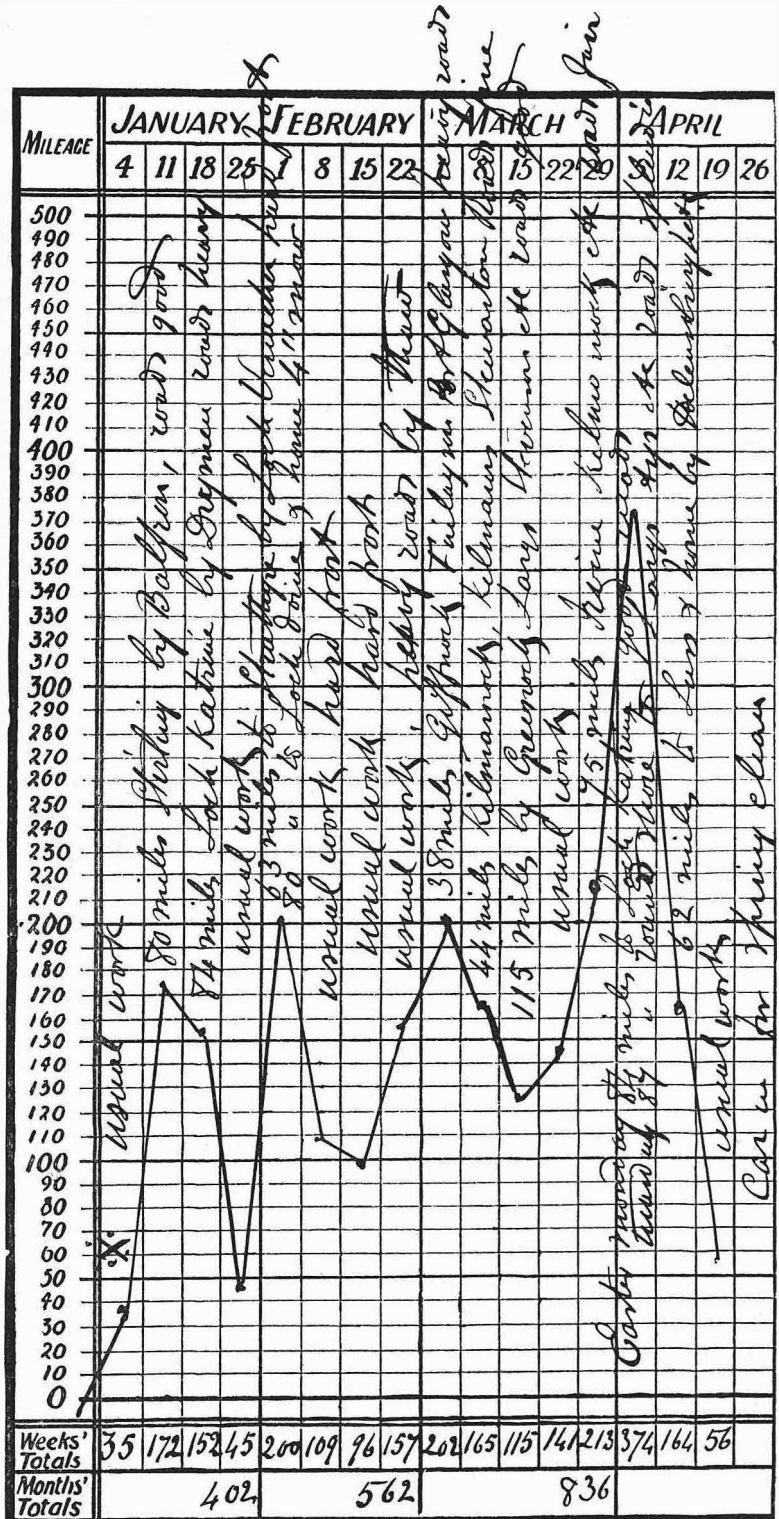 MILEAGE
JANUARY FEBRUARY MARCH APRIL
4 11 18 25 1 8 15 22 15 22 29 12 19 26
500
490
480
470
460
450
440
430
420
410
400
390
380
370
360
350
340
330
320
310
300
290
280
270
260
250
240
230
220
210
200
190
180
170
160
150
140
130
120
110
100
90
80
70
60
50
40
30
20
10
0
X
usual work
80 miles Stirling by Balfron, roads good
84 miles Loch Katrine by Drymen roads heavy
usual work
63 miles to by Loch hard frost
80 " to Loch & home 4" snow
usual work hard frost
usual work hard frost
usual work, heavy roads by thaw
38 miles Giffnock Port Glasgow heavy roads
44 miles Kilmarnock Kilmaurs Stewarton Roads fine
115 miles by Greenock Largs Stevenston etc roads good
usual work
75 miles Irvine Kilmarnock etc Roads fair
Easter Monday 84 miles to Loch Katrine good roads
Tuesday 84 " round shore to Largs Ayr etc roads splendid
62 miles to Luss & home by Helensburgh etc
usual work
Car in for spring clean
Weeks' Totals 35 172 152 45 200 109 96 157 202 165 115 141 213 374 164 56
Months' Totals 402 562 836